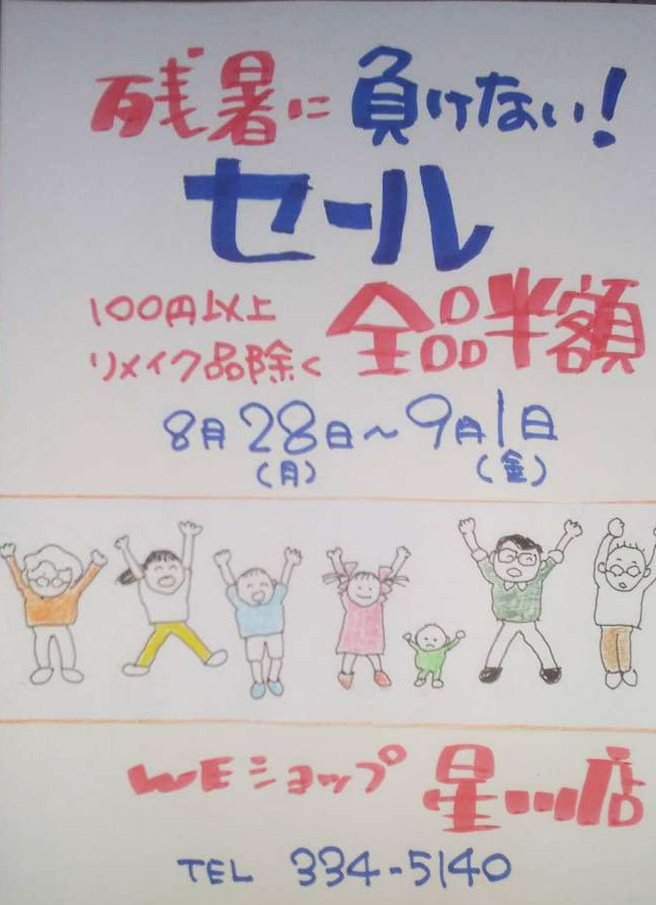 残暑に負けない!
セール
100円以上
リメイク品除く
全品半額
8月28日～9月1日
(月)
(金)
WEショップ 星川店
TEL 334-5140